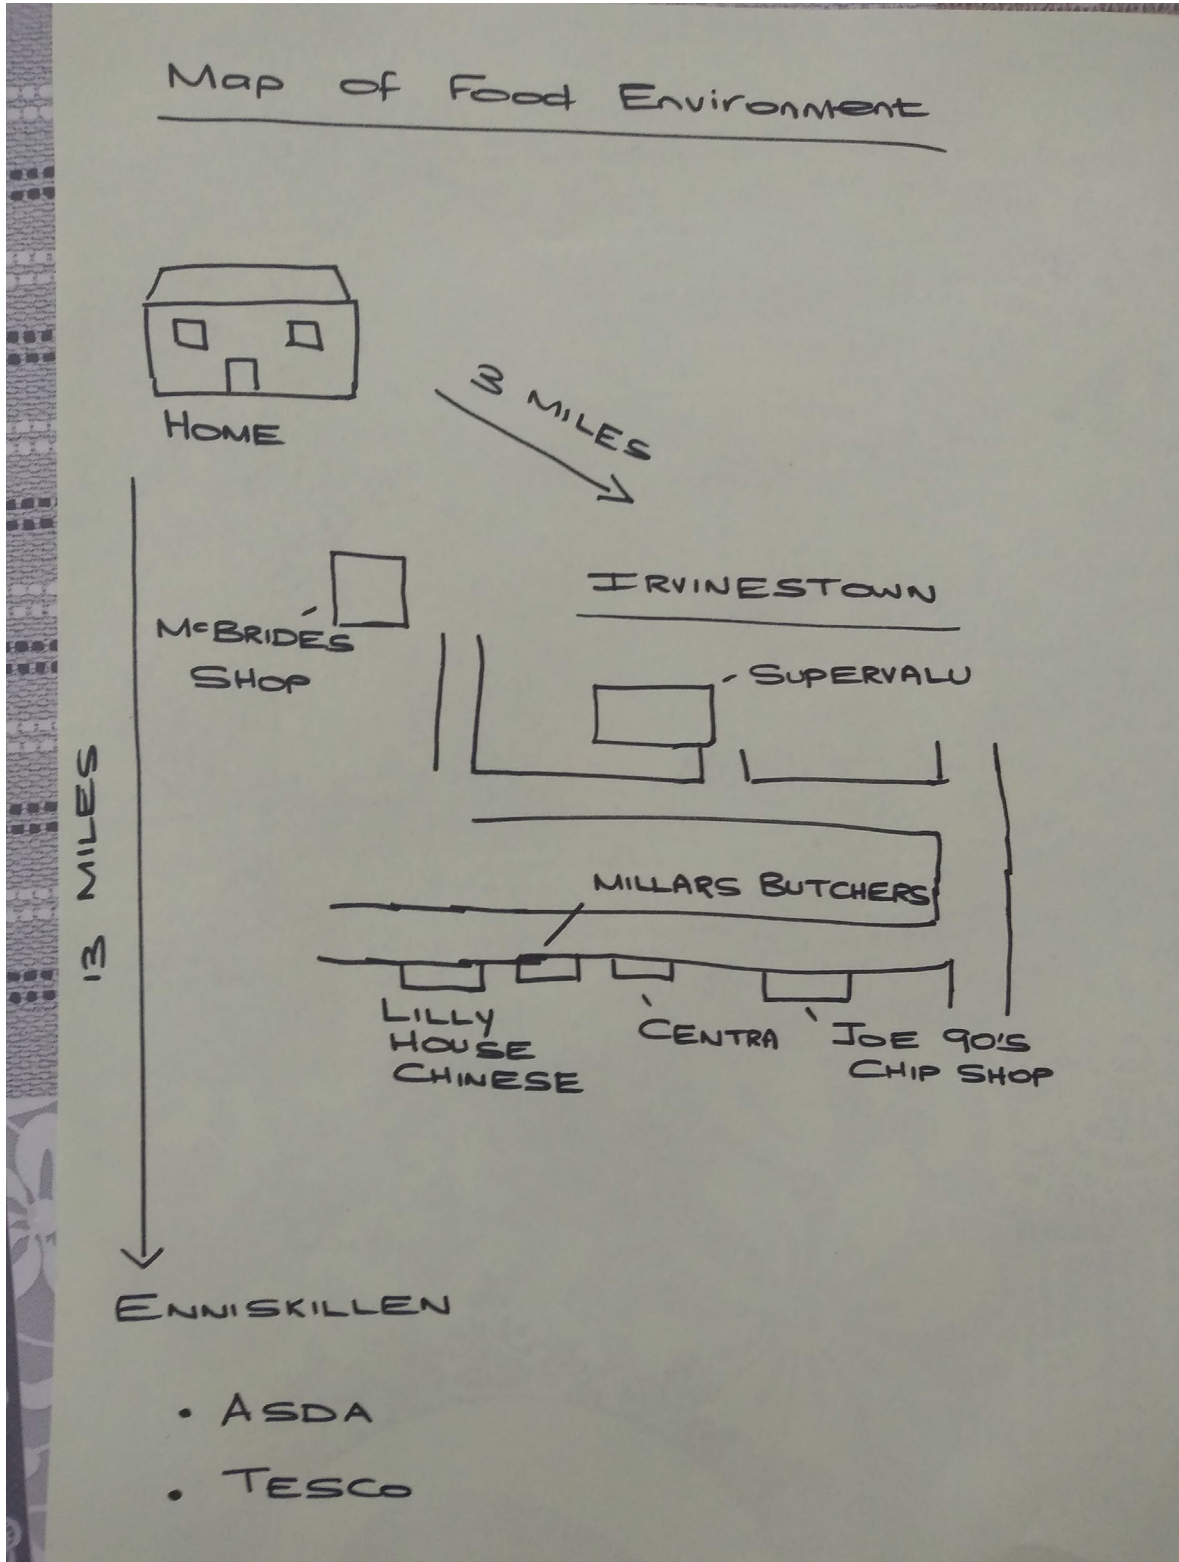 Map of Food Environment
HOME
3 MILES
IRVINESTOWN
McBRIDES
SHOP
SUPERVALU
13 MILES
MILLARS BUTCHERS
LILLY
HOUSE
CHINESE
CENTRA
JOE 90'S
CHIP SHOP
ENNISKILLEN
• ASDA
• TESCO